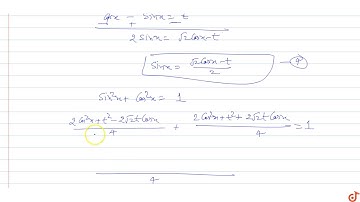 cosx - sinx = t
+
2 sinx = √2 cosx - t
sinx = (√2 cosx - t)/2
sin²x + cos²x = 1
(2 cos²x + t² - 2√2 t cosx)/4 + (2 cos²x + t² + 2√2 t cosx)/4 = 1
4